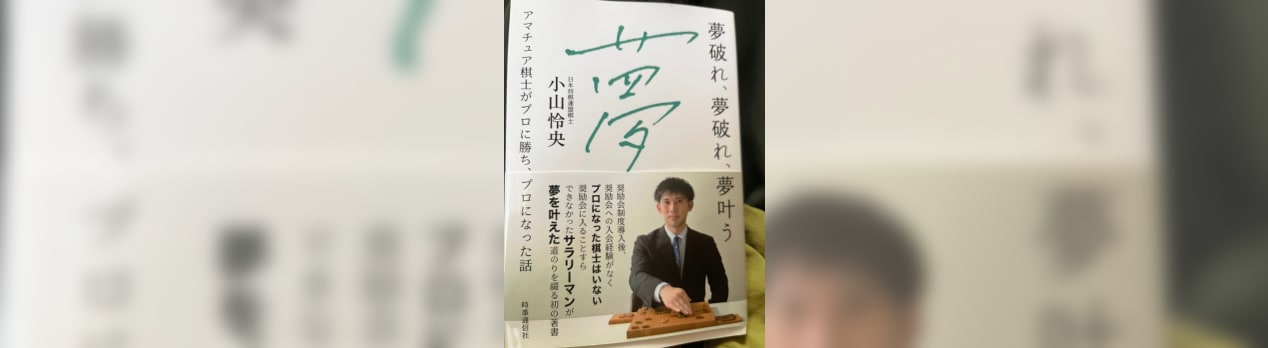 夢破れ、夢破れ、夢叶う
夢
日本将棋連盟棋士
小山怜央
アマチュア棋士がプロに勝ち、プロになった話
奨励会制度導入後、
奨励会への入会経験がなく
プロになった棋士はいない
奨励会に入ることすら
できなかったサラリーマンが
夢を叶えた道のりを綴る初の著書
時事通信社